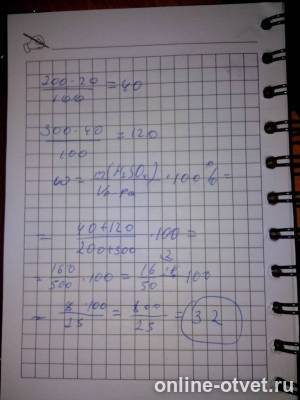 200·20/100 = 40
300·40/100 = 120
ω = m(H₂SO₄)/ · 100% =
= 40+120/200+300 · 100 =
= 160/500 · 100 = 16/50 · 100
= 8·100/25 = 800/25 = 32
online-otvet.ru